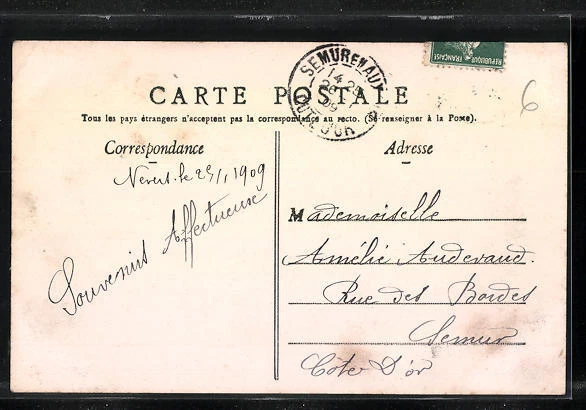 SEMUR EN AUX
CÔTE D'OR
RÉPUBLIQUE FRANÇAISE
6
CARTE POSTALE
Tous les pays étrangers n'acceptent pas la correspondance au recto. (Se renseigner à la Poste).
Correspondance
Nevers le 25/1 1909
Souvenirs Affectueux
Adresse
Mademoiselle
Amélie Audevaud.
Rue des Bordes
Semur
Côte D'or